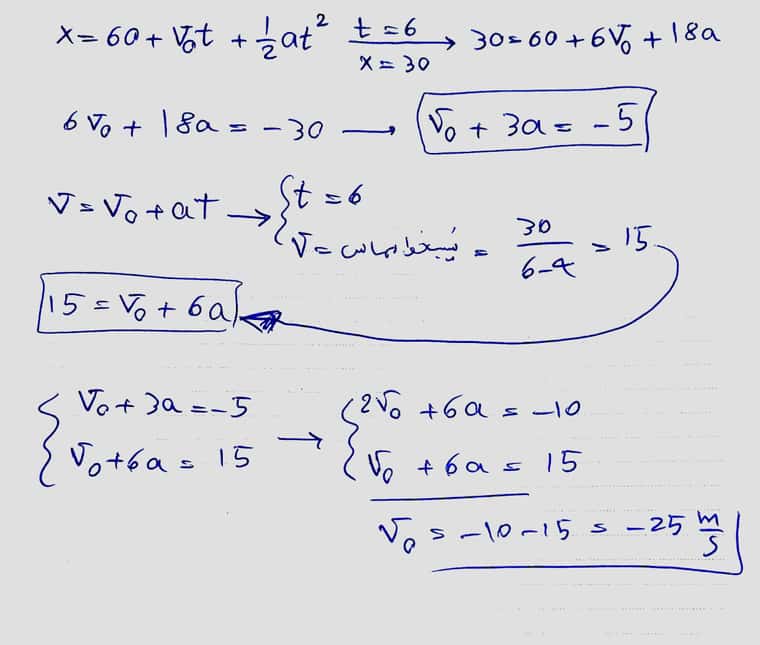 x = 60 + V₀t + 1/2 at² t=6 x=30 → 30 = 60 + 6V₀ + 18a
6V₀ + 18a = -30 → V₀ + 3a = -5
V = V₀ + at → { t = 6
V = شیب خط مماس = 30/6-4 = 15
15 = V₀ + 6a
{ V₀ + 3a = -5 → { 2V₀ + 6a = -10
V₀ + 6a = 15 V₀ + 6a = 15
V₀ = -10 - 15 = -25 m/s